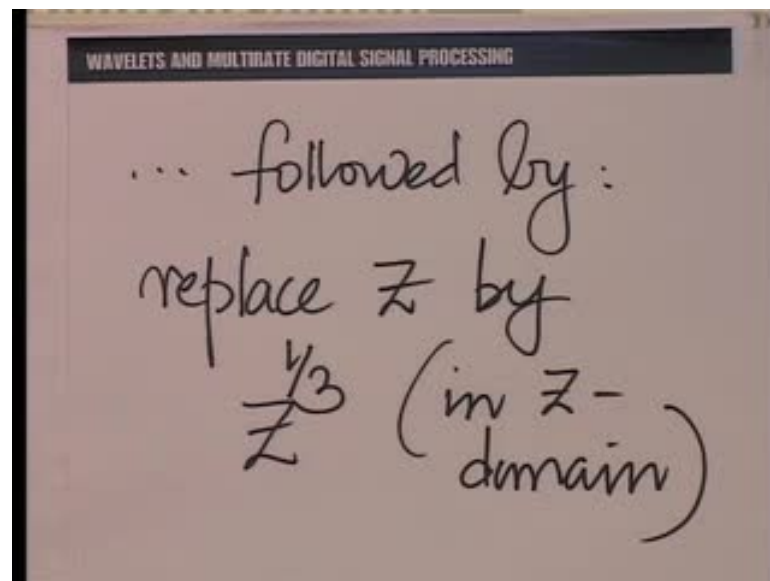 WAVELETS AND MULTIRATE DIGITAL SIGNAL PROCESSING
... followed by:
replace Z by
Z^{1/3} (in Z-
domain)